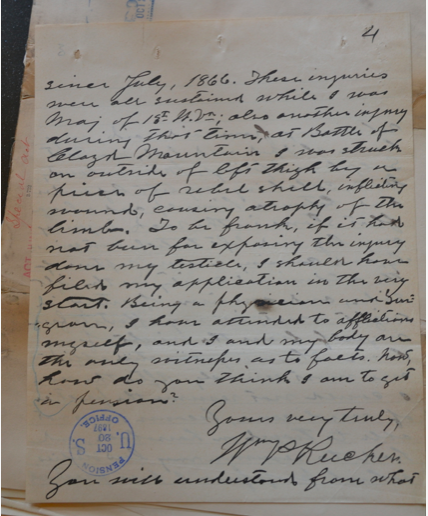 4
since July, 1866. These injuries
were all sustained while I was
Maj of 13th W.Va; also another injury
during that time, at Battle of
Cloyd Mountain I was struck
on outside of left thigh by a
piece of rebel shell, inflicting
wound, causing atrophy of the
limb. To be frank, if it had
not been for exposing the injury
done my testicle, I should have
filed my application in the very
start. Being a physician and Sur-
geon, I have attended to afflictions
myself, and I and my body are
the only witness as to facts. Now,
how do you think I am to get
a pension?
Yours very truly,
Wm P Rucker
You will understand from what
U. S. PENSION OFFICE
OCT 20 1887